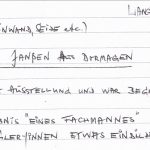 LANG
INWAND, SEIDE etc.)
JANSEN AUS DORMAGEN
AUSSTELLUNG UND WAR BEGE
NIS "EINES FACHMANNES"
LER*INNEN ETWAS EINBILD